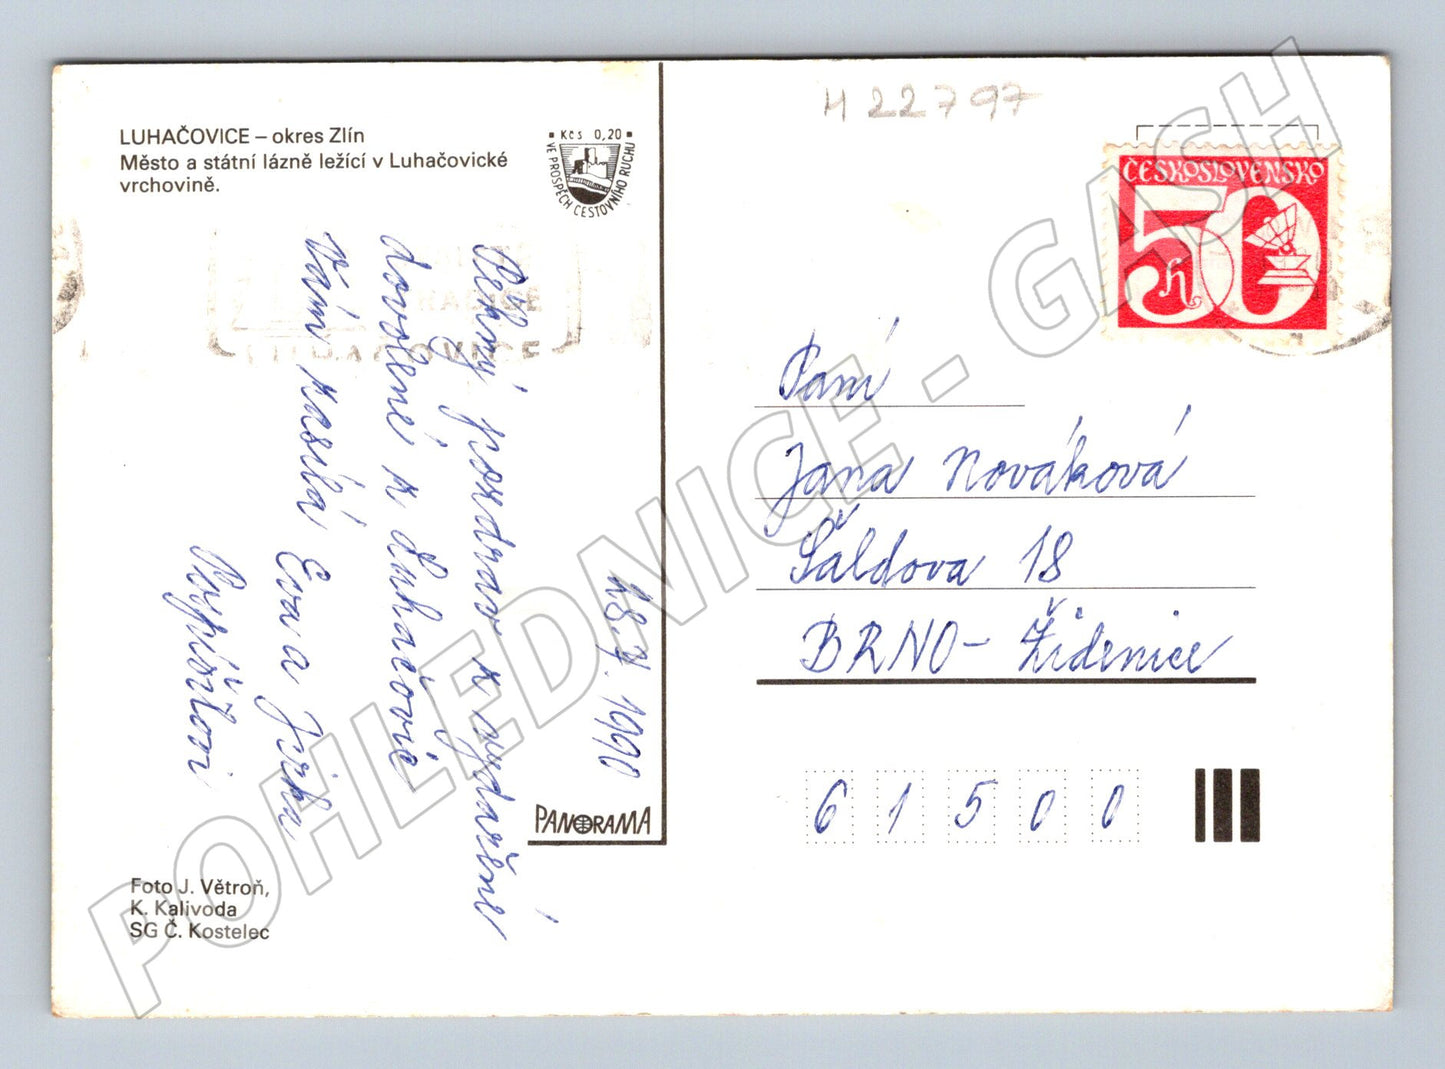 LUHAČOVICE – okres Zlín
Město a státní lázně ležící v Luhačovické
vrchovině.
Kčs 0,20
VE PROSPĚCH CESTOVNÍHO RUCHU
18.7.1990
Pěkný pozdrav z vydařené
dovolené z Luhačovic
Vám zasílá
Eva a Jirka
Pospíšilovi
PANORAMA
Foto J. Větroň,
K. Kalivoda
SG Č. Kostelec
H 22797
ČESKOSLOVENSKO
50
h
LUHAČOVICE
Paní
Jana Nováková
Šaldova 18
BRNO – Židenice
61500
POHLEDNICE - GASH